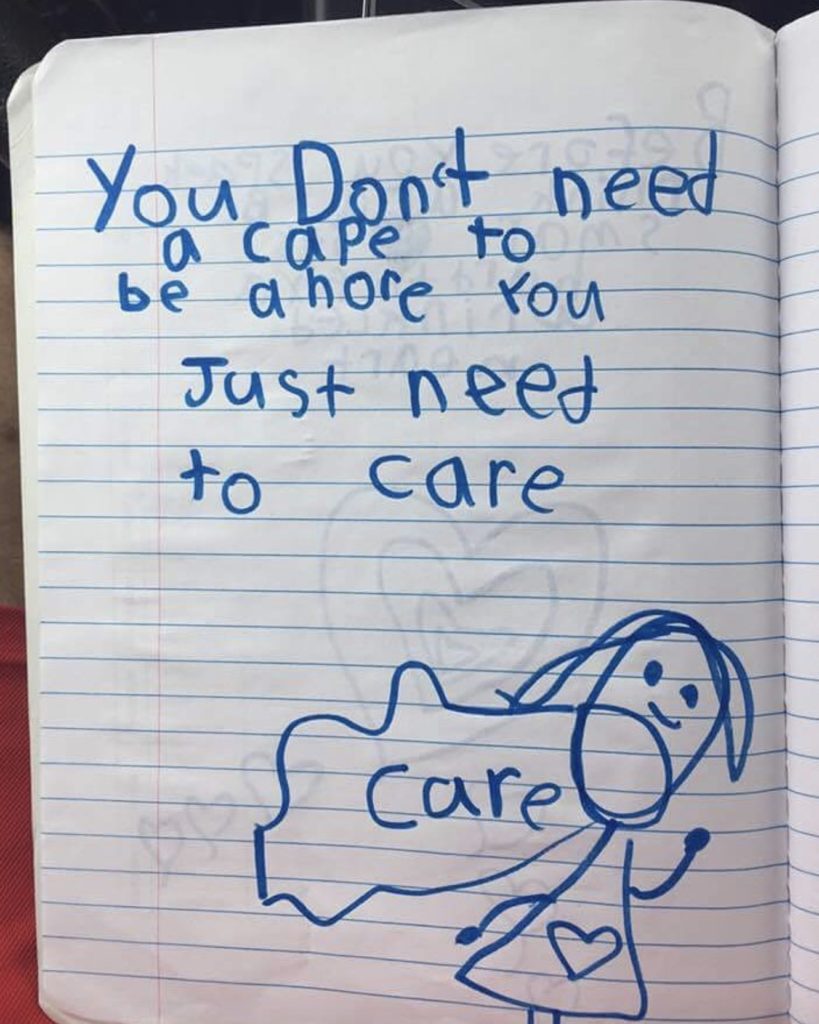 You Don't need
a cape to
be a hore you
Just need
to care
care